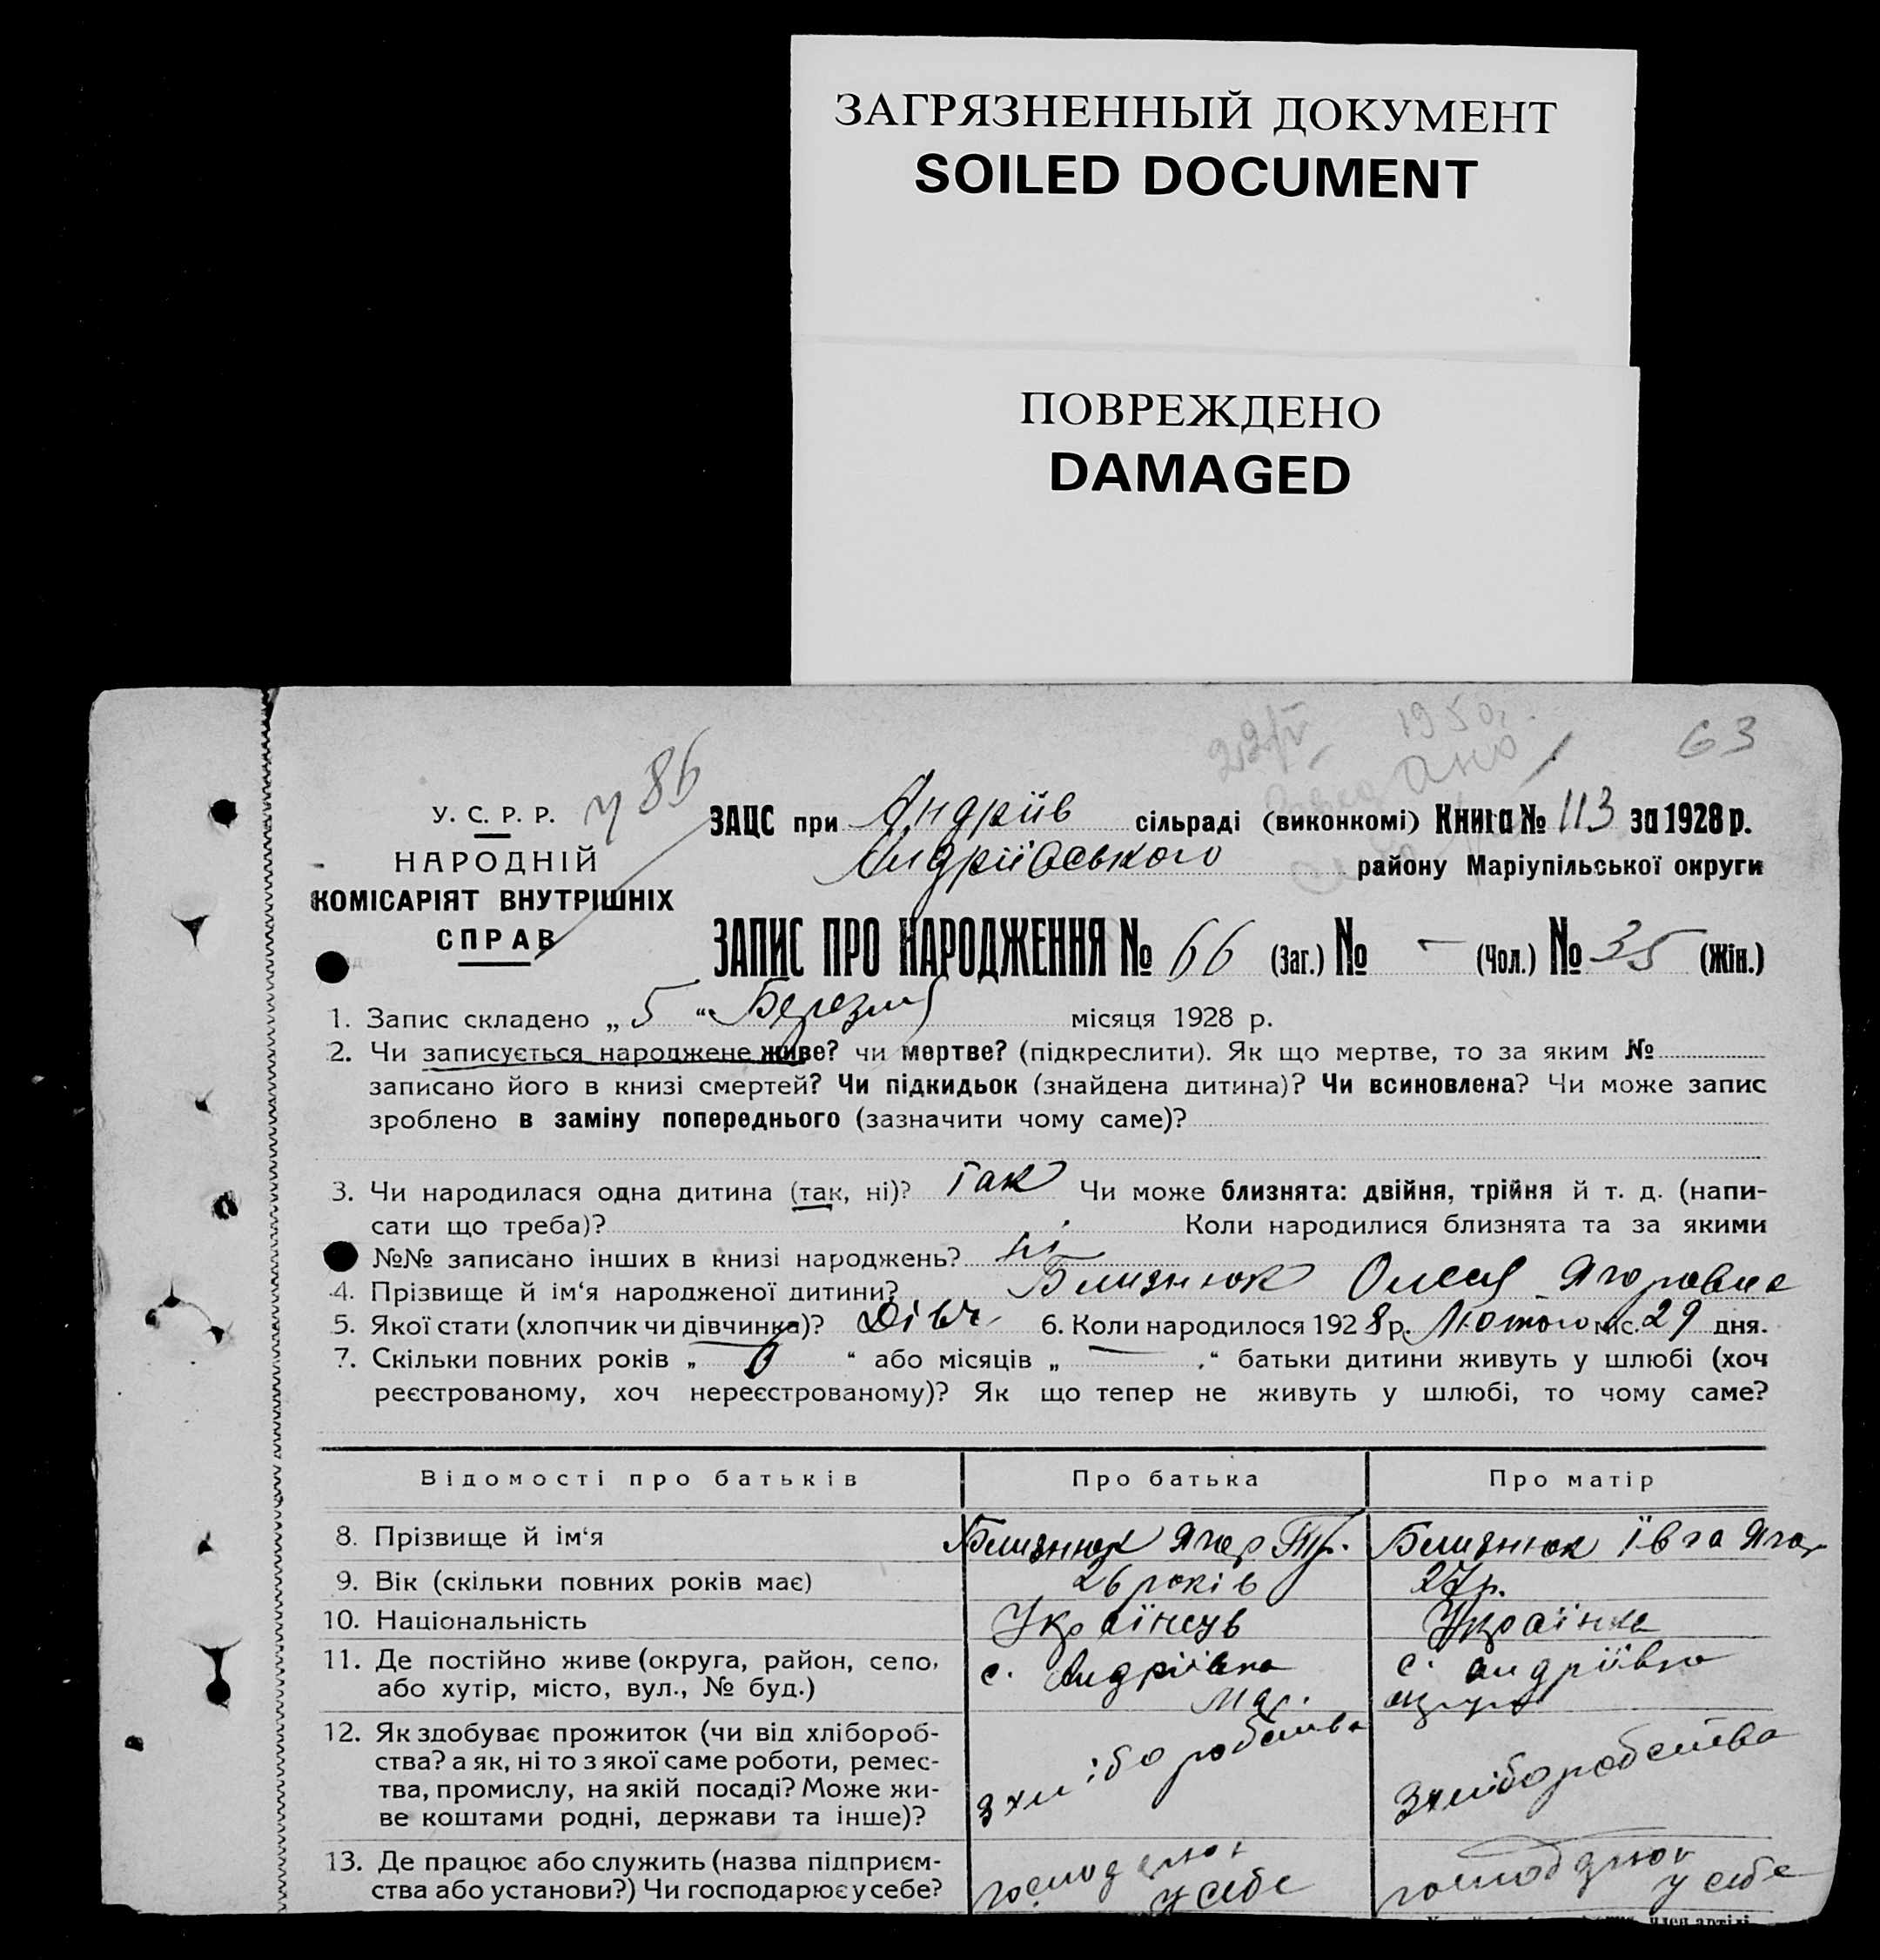 ЗАГРЯЗНЕННЫЙ ДОКУМЕНТ
SOILED DOCUMENT
ПОВРЕЖДЕНО
DAMAGED
1950
63
86
У. С. Р. Р.
НАРОДНІЙ
КОМІСАРІЯТ ВНУТРІШНІХ
СПРАВ
ЗАЦС при Андріїв сільраді (виконкомі) Книга № 113 за 1928 р.
Андріївського району Маріупільської округи
ЗАПИС ПРО НАРОДЖЕННЯ № 66 (Заг.) № - (Чол.) № 35 (Жін.)
1. Запис складено „ 5 “ Березня місяця 1928 р.
2. Чи записується народжене живе? чи мертве? (підкреслити). Як що мертве, то за яким №
записано його в книзі смертей? Чи підкидьок (знайдена дитина)? Чи всиновлена? Чи може запис
зроблено в заміну попереднього (зазначити чому саме)?
3. Чи народилася одна дитина (так, ні)? Так Чи може близнята: двійня, трійня й т. д. (напи-
сати що треба)? Коли народилися близнята та за якими
№№ записано інших в книзі народжень? ні
4. Прізвище й ім‘я народженої дитини? Близнюк Олеся Ягоровна
5. Якої стати (хлопчик чи дівчинка)? Дівч. 6. Коли народилось 1928 р. Лютого міс. 29 дня.
7. Скільки повних років „ 6 “ або місяців „ — “ батьки дитини живуть у шлюбі (хоч
реєстрованому, хоч нереєстрованому)? Як що тепер не живуть у шлюбі, то чому саме?
Відомості про батьків Про батька Про матір
8. Прізвище й ім‘я Близнюк Ягор Близнюк Ївга Ягор
9. Вік (скільки повних років має) 26 років 27 р.
10. Національність Українець Українка
11. Де постійно живе (округа, район, село, с. Андріївка с. Андріївка
або хутір, місто, вул., № буд.) Мар.
12. Як здобуває прожиток (чи від хлібороб-
ства? а як, ні то з якої саме роботи, ремес-
тва, промислу, на якій посаді? Може жи- з хліборобства з хліборобства
ве коштами родні, держави та інше)?
13. Де працює або служить (назва підприєм-
ства або установи?) Чи господарює у себе? у себе у себе